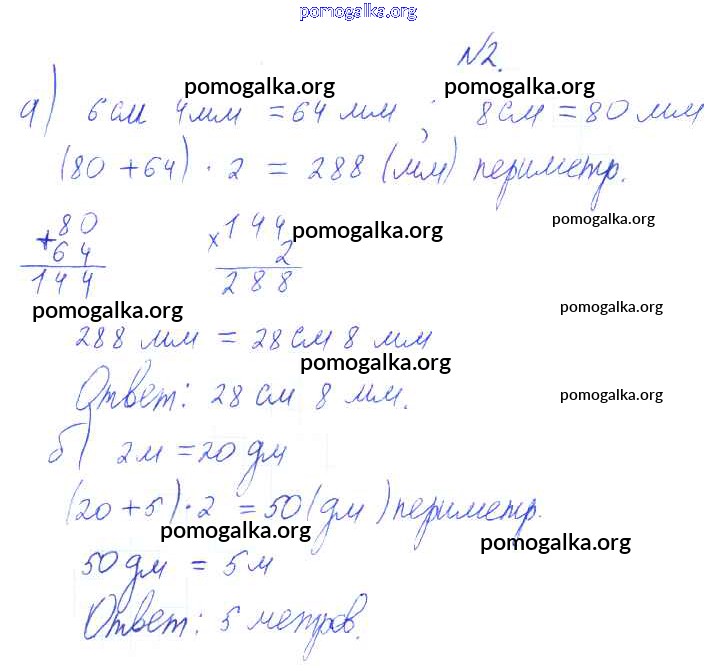 pomogalka.org
№2.
pomogalka.org pomogalka.org
а) 6 см 4 мм = 64 мм ; 8 см = 80 мм
(80 + 64) · 2 = 288 (мм) периметр.
pomogalka.org
+80 ×144 pomogalka.org
64 2
144 288
pomogalka.org pomogalka.org
288 мм = 28 см 8 мм
pomogalka.org
Ответ: 28 см 8 мм.
pomogalka.org
б) 2 м = 20 дм
(20 + 5) · 2 = 50 (дм) периметр.
pomogalka.org pomogalka.org
50 дм = 5 м
Ответ: 5 метров.